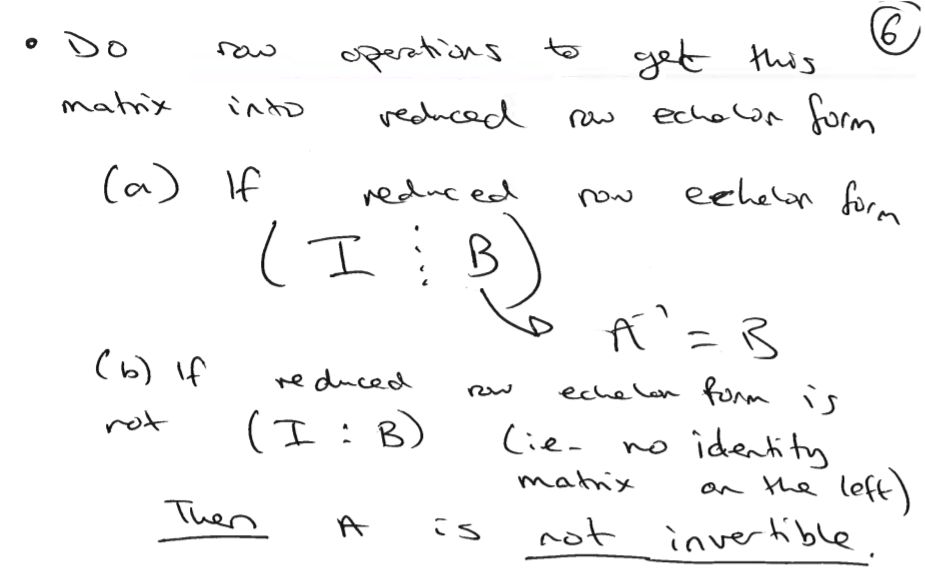 ⑥
• Do row operations to get this
matrix into reduced row echelon form
(a) If reduced row echelon form
( I ⋮ B )
A⁻¹ = B
(b) If reduced row echelon form is
not ( I : B ) (ie- no identity
matrix on the left)
Then A is not invertible.